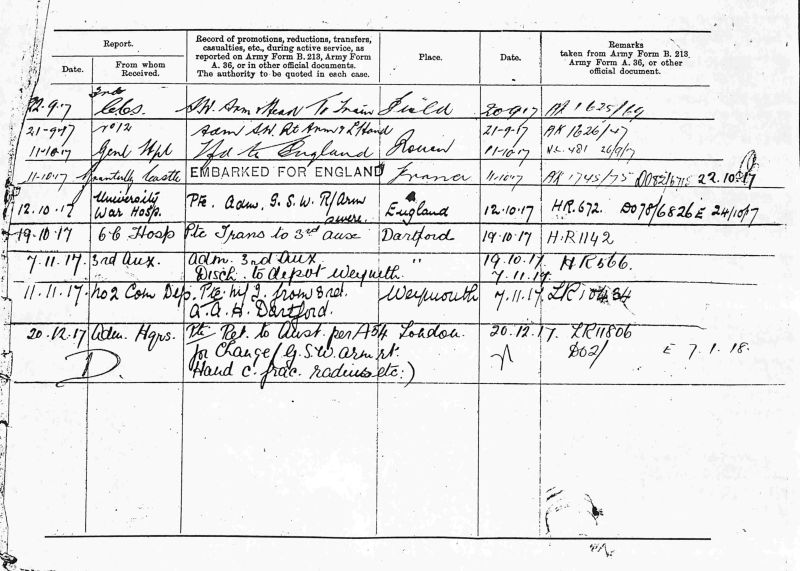 Report.
Record of promotions, reductions, transfers,
casualties, etc., during active service, as
reported on Army Form B. 213, Army Form
A. 36, or in other official documents.
The authority to be quoted in each case.
Place.
Date.
Remarks
taken from Army Form B. 213,
Army Form A. 36, or other
official documents.
Date.
From whom
Received.
22.9.17 CCS. S.W. Arm & Head To Train Field 20.9.17 AR 1625/
21-9-17 No 12 adm S.W. Rt Arm & L Hand 21-9-17 AR 1626/47
11-10-17 Genl Hpl Tfd to England Rouen 11-10-17 481 26/9/17
11-10-17 Castle EMBARKED FOR ENGLAND France 11-10-17 AR 1745/75 22.10.17
12.10.17 University
War Hosp. Pte. Adm. G.S.W. R/Arm
severe. England 12.10.17 H.R.672. DO78/6826 E 24/10/17
19.10.17 6.C Hosp Pte Trans to 3rd aux Dartford 19.10.17 H.R1142
7.11.17. 3rd Aux. adm. 3rd Aux " 19.10.17. H.R566.
Disch. to depot Weymth 7.11.17.
11.11.17. No 2 Com Dep. Pte from 3rd.
A.A.H. Dartford. Weymouth 7.11.17.
20.12.17 Adm. Hqrs. Pte Ret. to Aust. per A54 London 20.12.17. LR11806
for Change (G.S.W. arm rt. DO2/ E 7.1.18.
Hand c. frac. radius etc.)
D.